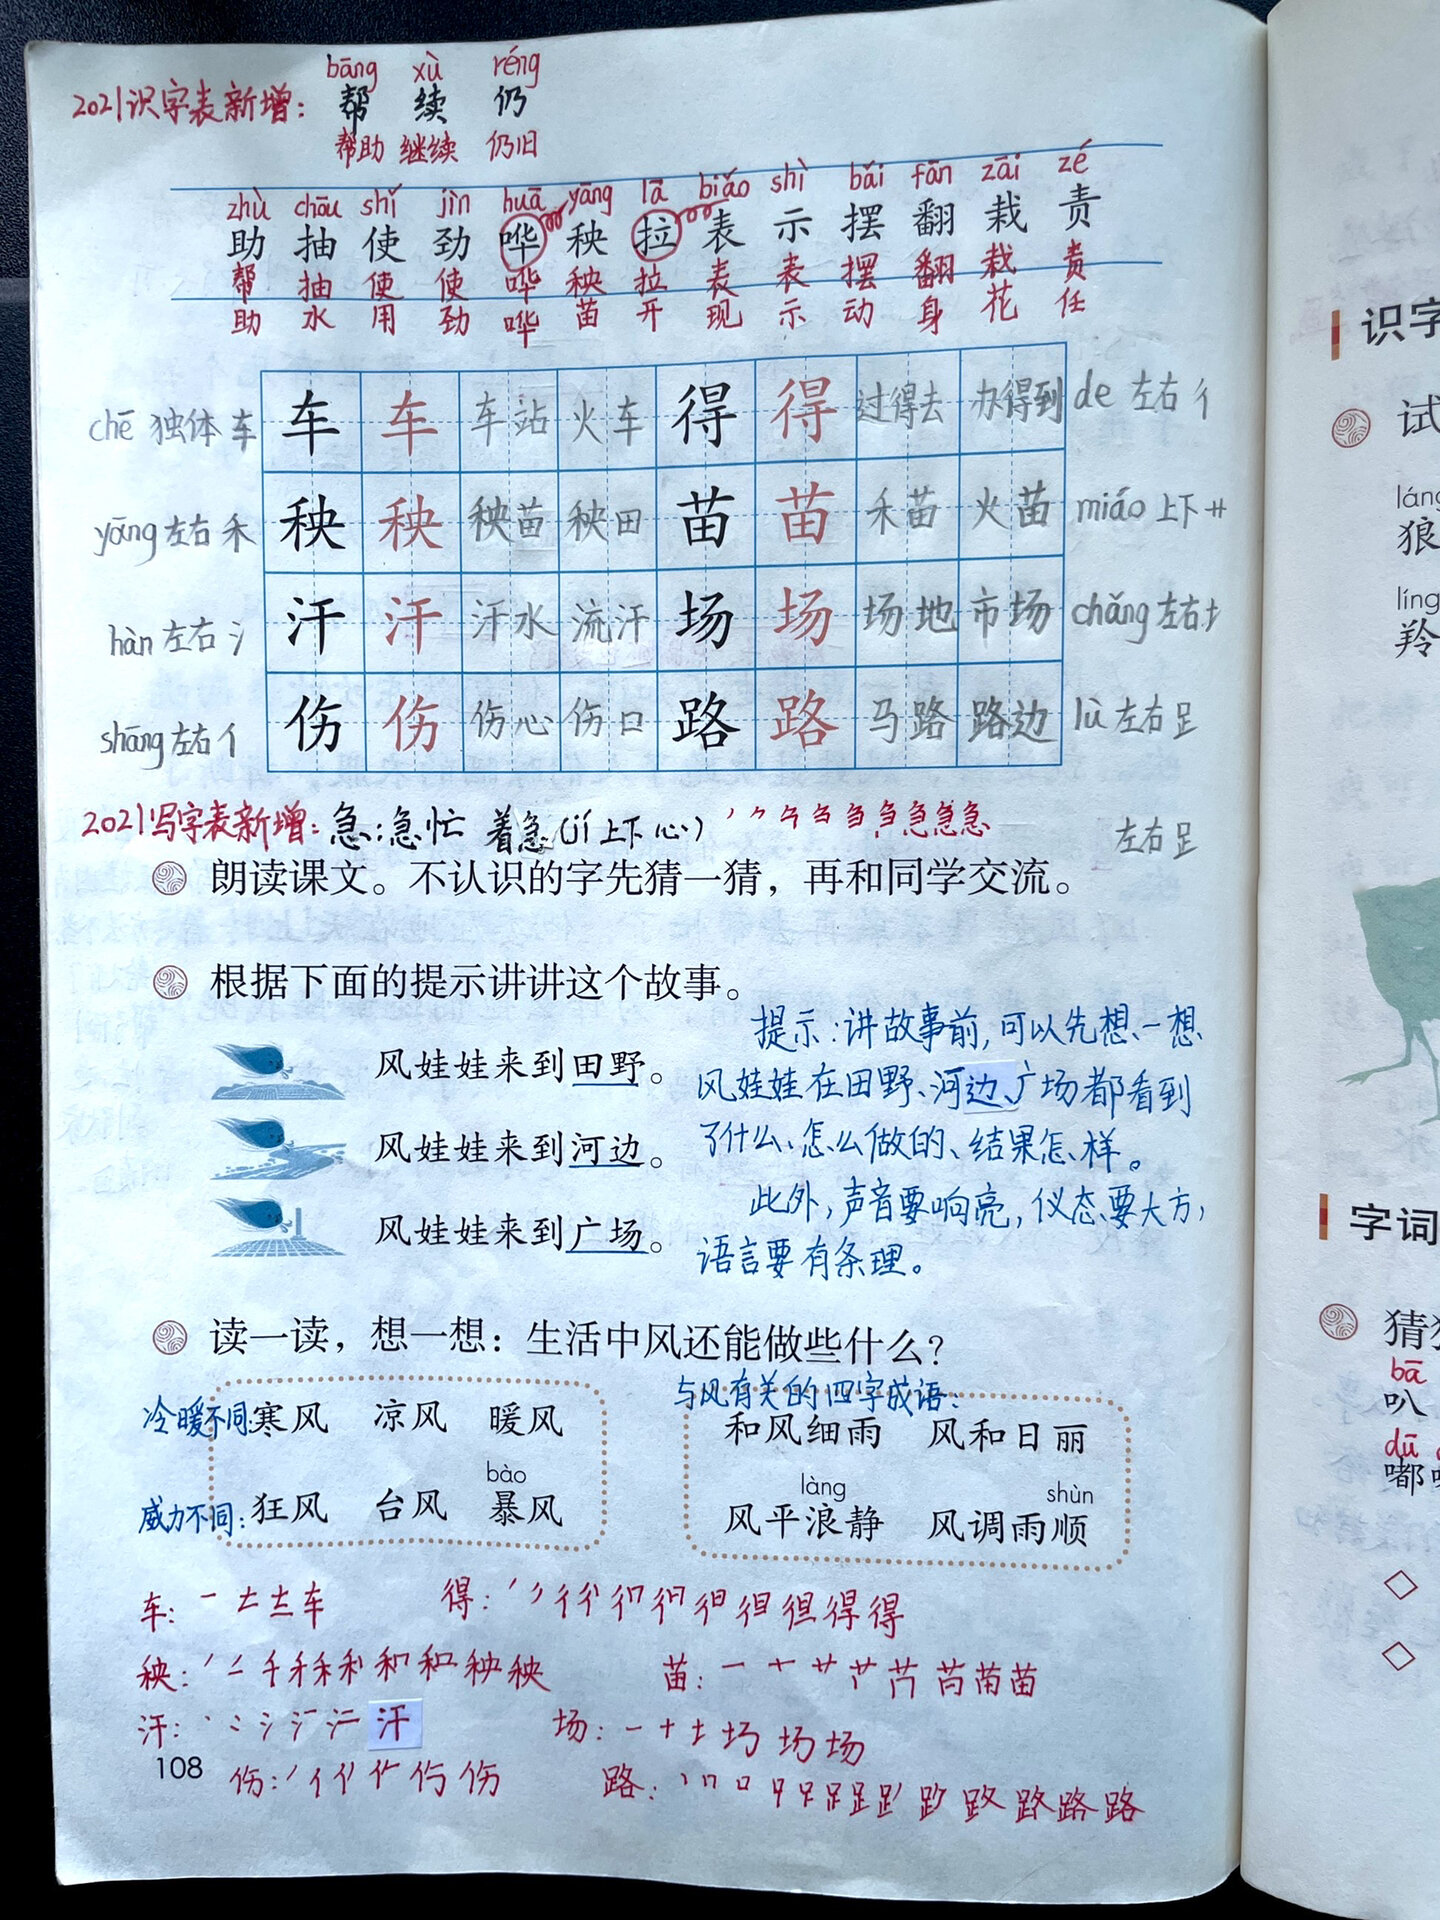 bāng xù réng
2021识字表新增: 帮 续 仍
帮助 继续 仍旧
zhù chōu shǐ jìn huā yāng lā biǎo shì bǎi fān zāi zé
助 抽 使 劲 哗 秧 拉 表 示 摆 翻 栽 责
帮 抽 使 使 哗 秧 拉 表 表 摆 翻 栽 责
助 水 用 劲 哗 苗 开 现 示 动 身 花 任
chē 独体 车 车 车 车站 火车 得 得 过得去 办得到 de 左右 彳
yāng 左右 禾 秧 秧 秧苗 秧田 苗 苗 禾苗 火苗 miáo 上下 艹
hàn 左右 氵 汗 汗 汗水 流汗 场 场 场地 市场 chǎng 左右 土
shāng 左右 亻 伤 伤 伤心 伤口 路 路 马路 路边 lù 左右 足
2021写字表新增: 急:急忙 着急(jí 上下 心)
左右 足
朗读课文。不认识的字先猜一猜，再和同学交流。
根据下面的提示讲讲这个故事。
风娃娃来到田野。
风娃娃来到河边。
风娃娃来到广场。
提示:讲故事前,可以先想一想
风娃娃在田野、河边、广场都看到
了什么、怎么做的、结果怎样。
此外,声音要响亮,仪态要大方,
语言要有条理。
读一读，想一想：生活中风还能做些什么？
冷暖不同:寒风 凉风 暖风
bào
威力不同:狂风 台风 暴风
与风有关的四字成语:
和风细雨 风和日丽
làng shùn
风平浪静 风调雨顺
车: 车
得: 得
秧: 秧
苗: 苗
汗: 汗
场: 场
伤: 伤
路: 路
108
识字
试
láng
狼
líng
羚
字词
猜猜
bā
叭
dū
嘟